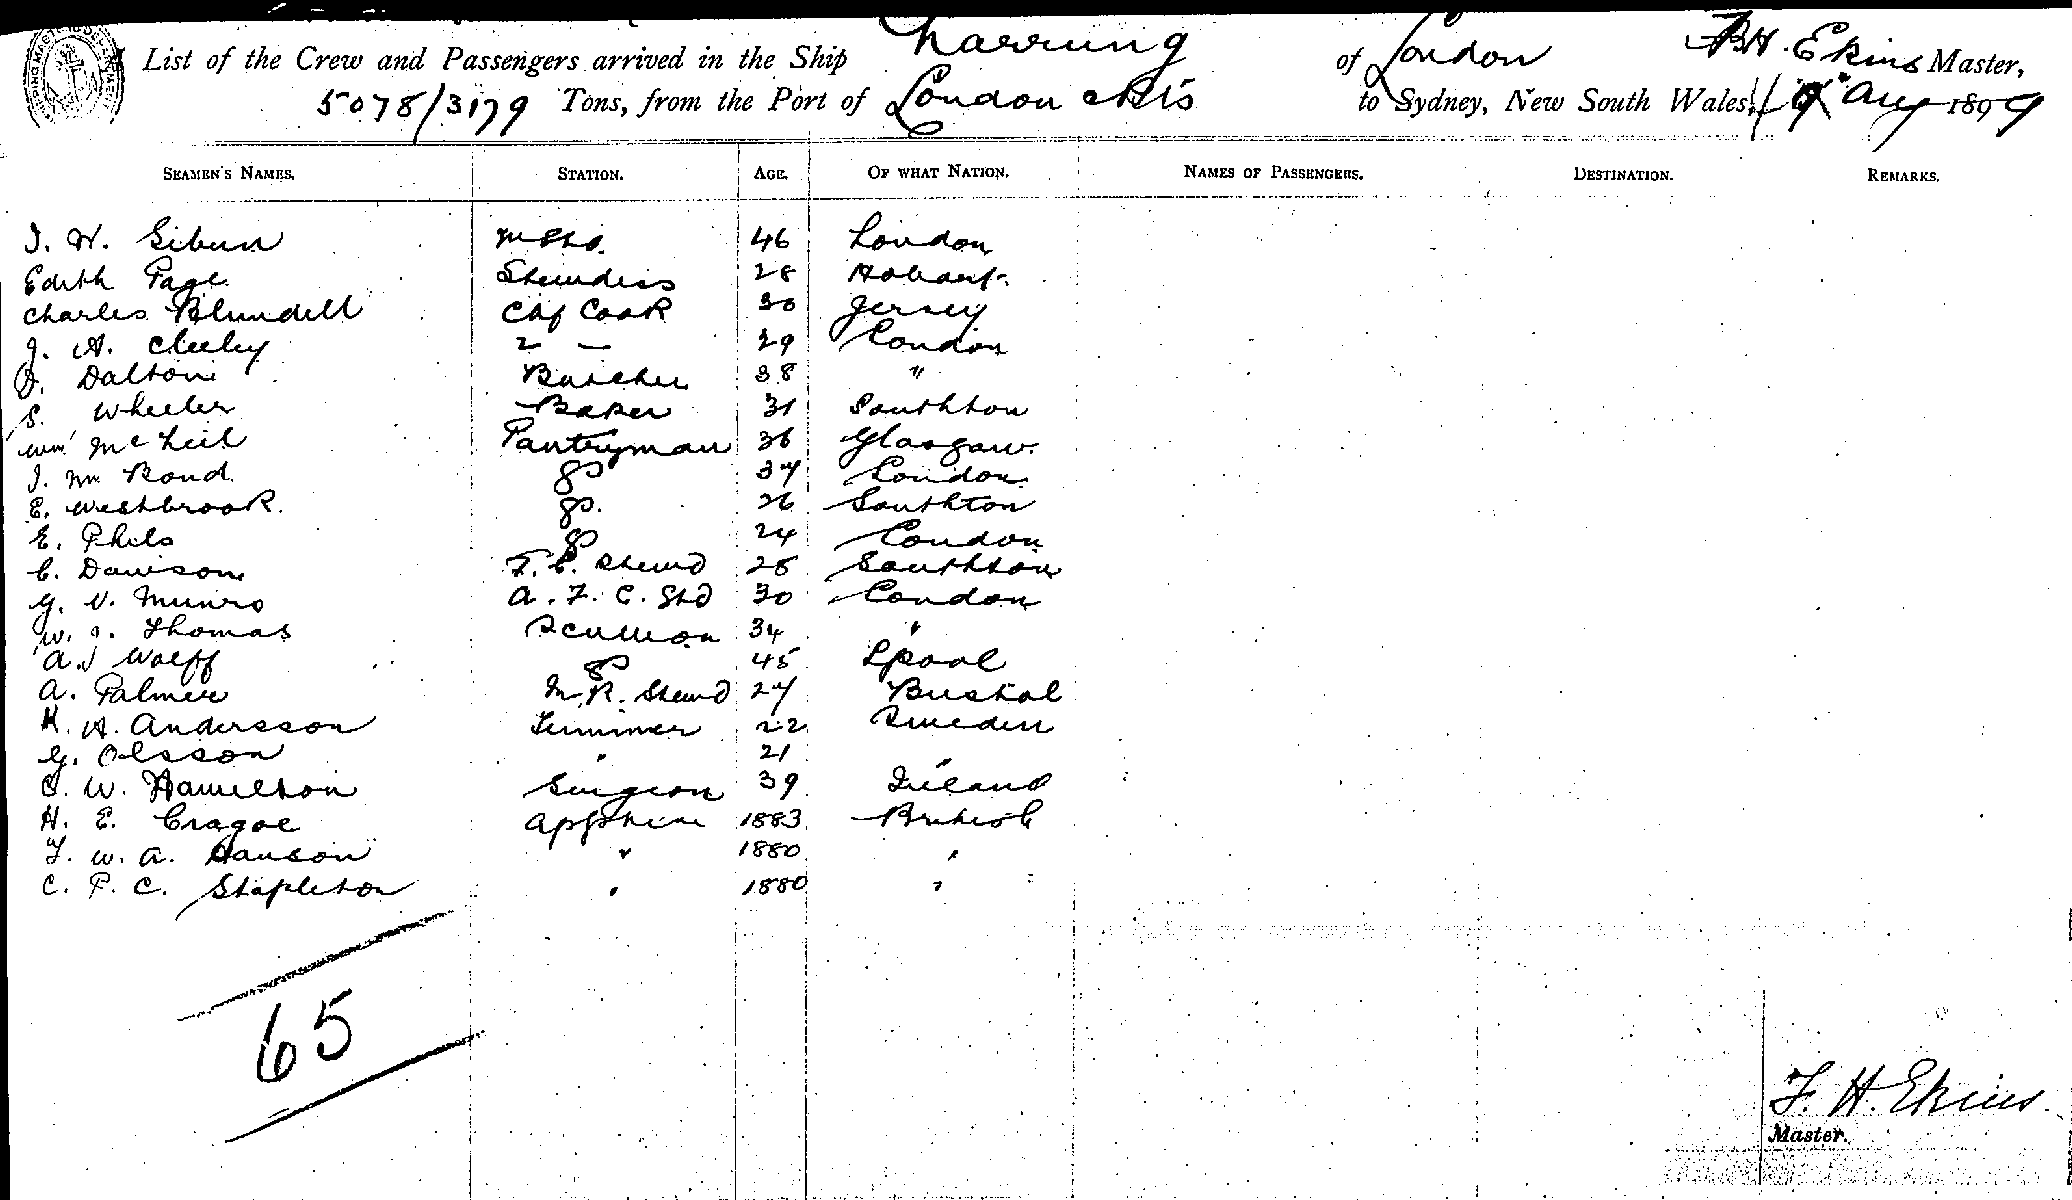 List of the Crew and Passengers arrived in the Ship Narrung of London F.H. Ekins Master,
5078/3179 Tons, from the Port of London to Sydney, New South Wales, Aug 1899
SEAMEN'S NAMES. STATION. AGE. OF WHAT NATION. NAMES OF PASSENGERS. DESTINATION. REMARKS.
J. W. Gibun 46 London
Edith Page Stewdess 28 Hobart
Charles Blundell Chf Cook 30 Jersey
J. A. Cleeley 2 — 29 London
J. Dalton Butcher 38 "
S. Wheeler Baker 31 Southton
Wm McNeil Pantryman 36 Glasgow
J. Wm Bond gs 37 London
E. Westbrook gs. 26 Southton
E. Phils gs 24 London
C. Davison F. C. Stewd 28 Southton
G. V. Munro A. F. C. Std 30 London
W. J. Thomas Scullion 34 "
A. J Wolff gs 45 Lpool
A. Palmer M. R. Stewd 27 Bristol
K. A. Andersson Trimmer 22 Sweden
G. Olsson " 21 "
C. W. Hamilton Surgeon 39 Ireland
H. E. Cragoe 1883 British
F. W. A. Hanson " 1880 "
C. P. C. Stapleton " 1880 "
65
F. H. Ekins.
Master.